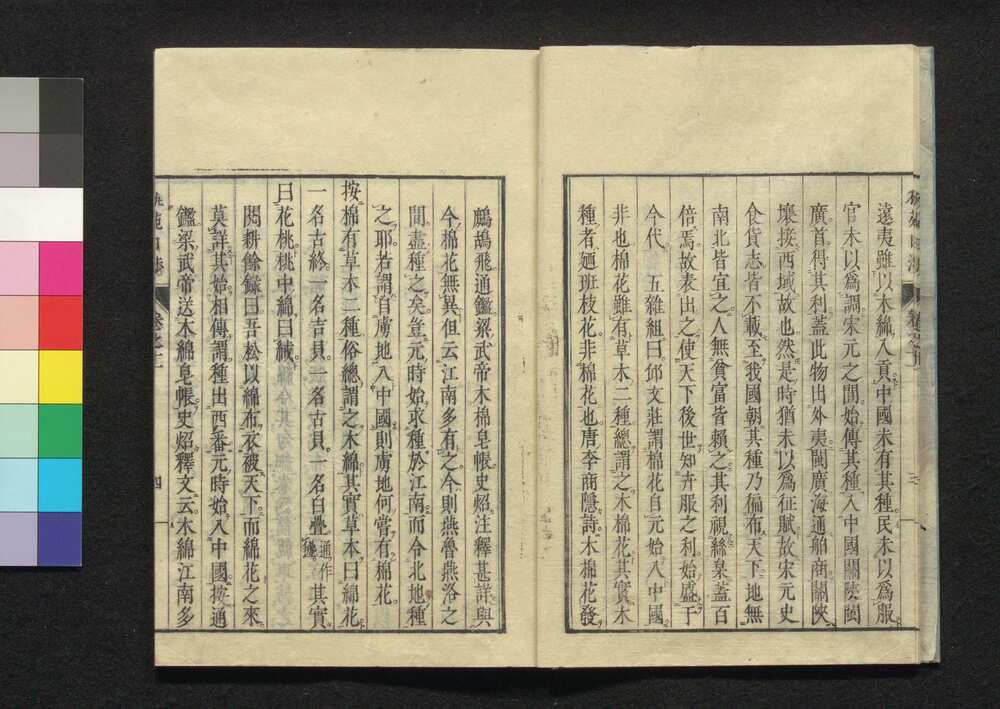 遠夷雖以木緜入貢中國未有其種民未以爲服
官未以爲調宋元之間始傳其種入中國關陝閩
廣首得其利蓋此物出外夷閩廣海通舶商關陝
壤接西域故也然是時猶未以爲征賦故宋元史
食貨志皆不載至我國朝其種乃徧布天下地無
南北皆宜之人無貧富皆賴之其利視絲枲蓋百
倍焉故表出之使天下後世知卉服之利始盛于
今代 五雜組曰邱文莊謂棉花自元始入中國
非也棉花雖有草木二種總謂之木棉花其實木
種者廼班枝花非棉花也唐李商隱詩木棉花發
鷓鴣飛通鑑梁武帝木棉皂帳史炤注釋甚詳與
今棉花無異但云江南多有之今則燕魯燕洛之
間盡種之矣豈元時始求種於江南而令北地種
之耶若謂自虜地入中國則虜地何嘗有棉花
按棉有草木二種俗總謂之木綿其實草本曰綿花
一名古終一名吉貝一名古貝一名白疊通作㲲其實
曰花桃桃中綿曰絨
閱耕餘錄曰吾松以綿布衣被天下而綿花之來
莫詳其始相傳謂種出西番元時始入中國按通
鑑梁武帝送木綿皂帳史炤釋文云木綿江南多
卷之十
四